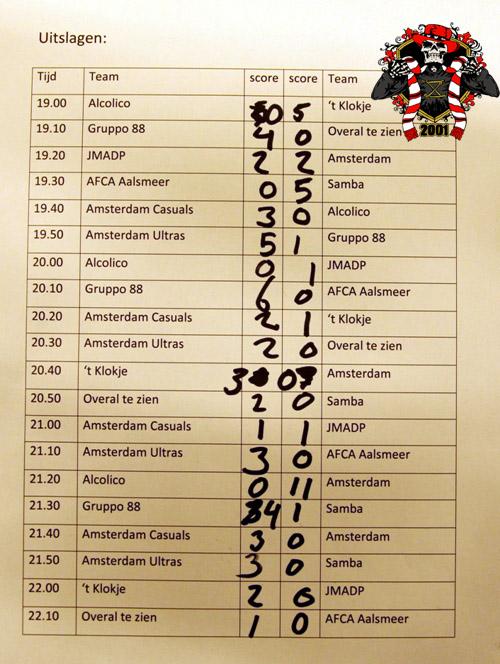 Uitslagen:
Tijd Team score score Team
19.00 Alcolico 0 5 't Klokje
19.10 Gruppo 88 4 0 Overal te zien
19.20 JMADP 2 2 Amsterdam
19.30 AFCA Aalsmeer 0 5 Samba
19.40 Amsterdam Casuals 3 0 Alcolico
19.50 Amsterdam Ultras 5 1 Gruppo 88
20.00 Alcolico 0 1 JMADP
20.10 Gruppo 88 6 0 AFCA Aalsmeer
20.20 Amsterdam Casuals 2 1 't Klokje
20.30 Amsterdam Ultras 2 0 Overal te zien
20.40 't Klokje 3 0 Amsterdam
20.50 Overal te zien 2 0 Samba
21.00 Amsterdam Casuals 1 1 JMADP
21.10 Amsterdam Ultras 3 0 AFCA Aalsmeer
21.20 Alcolico 0 11 Amsterdam
21.30 Gruppo 88 4 1 Samba
21.40 Amsterdam Casuals 3 0 Amsterdam
21.50 Amsterdam Ultras 3 0 Samba
22.00 't Klokje 2 0 JMADP
22.10 Overal te zien 1 0 AFCA Aalsmeer
2001